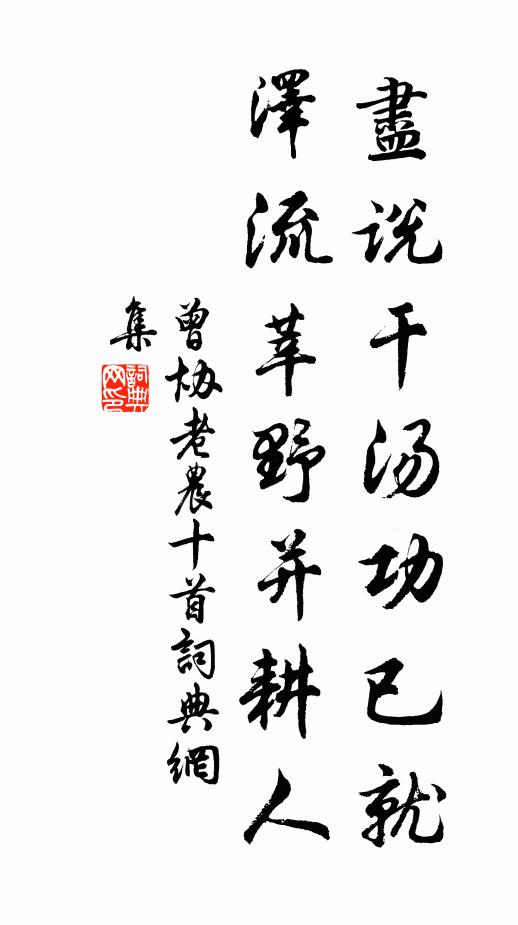 盡説干湯功已就
澤流莘野并耕人
曾協老農十首詞典網
集
詞典
网印